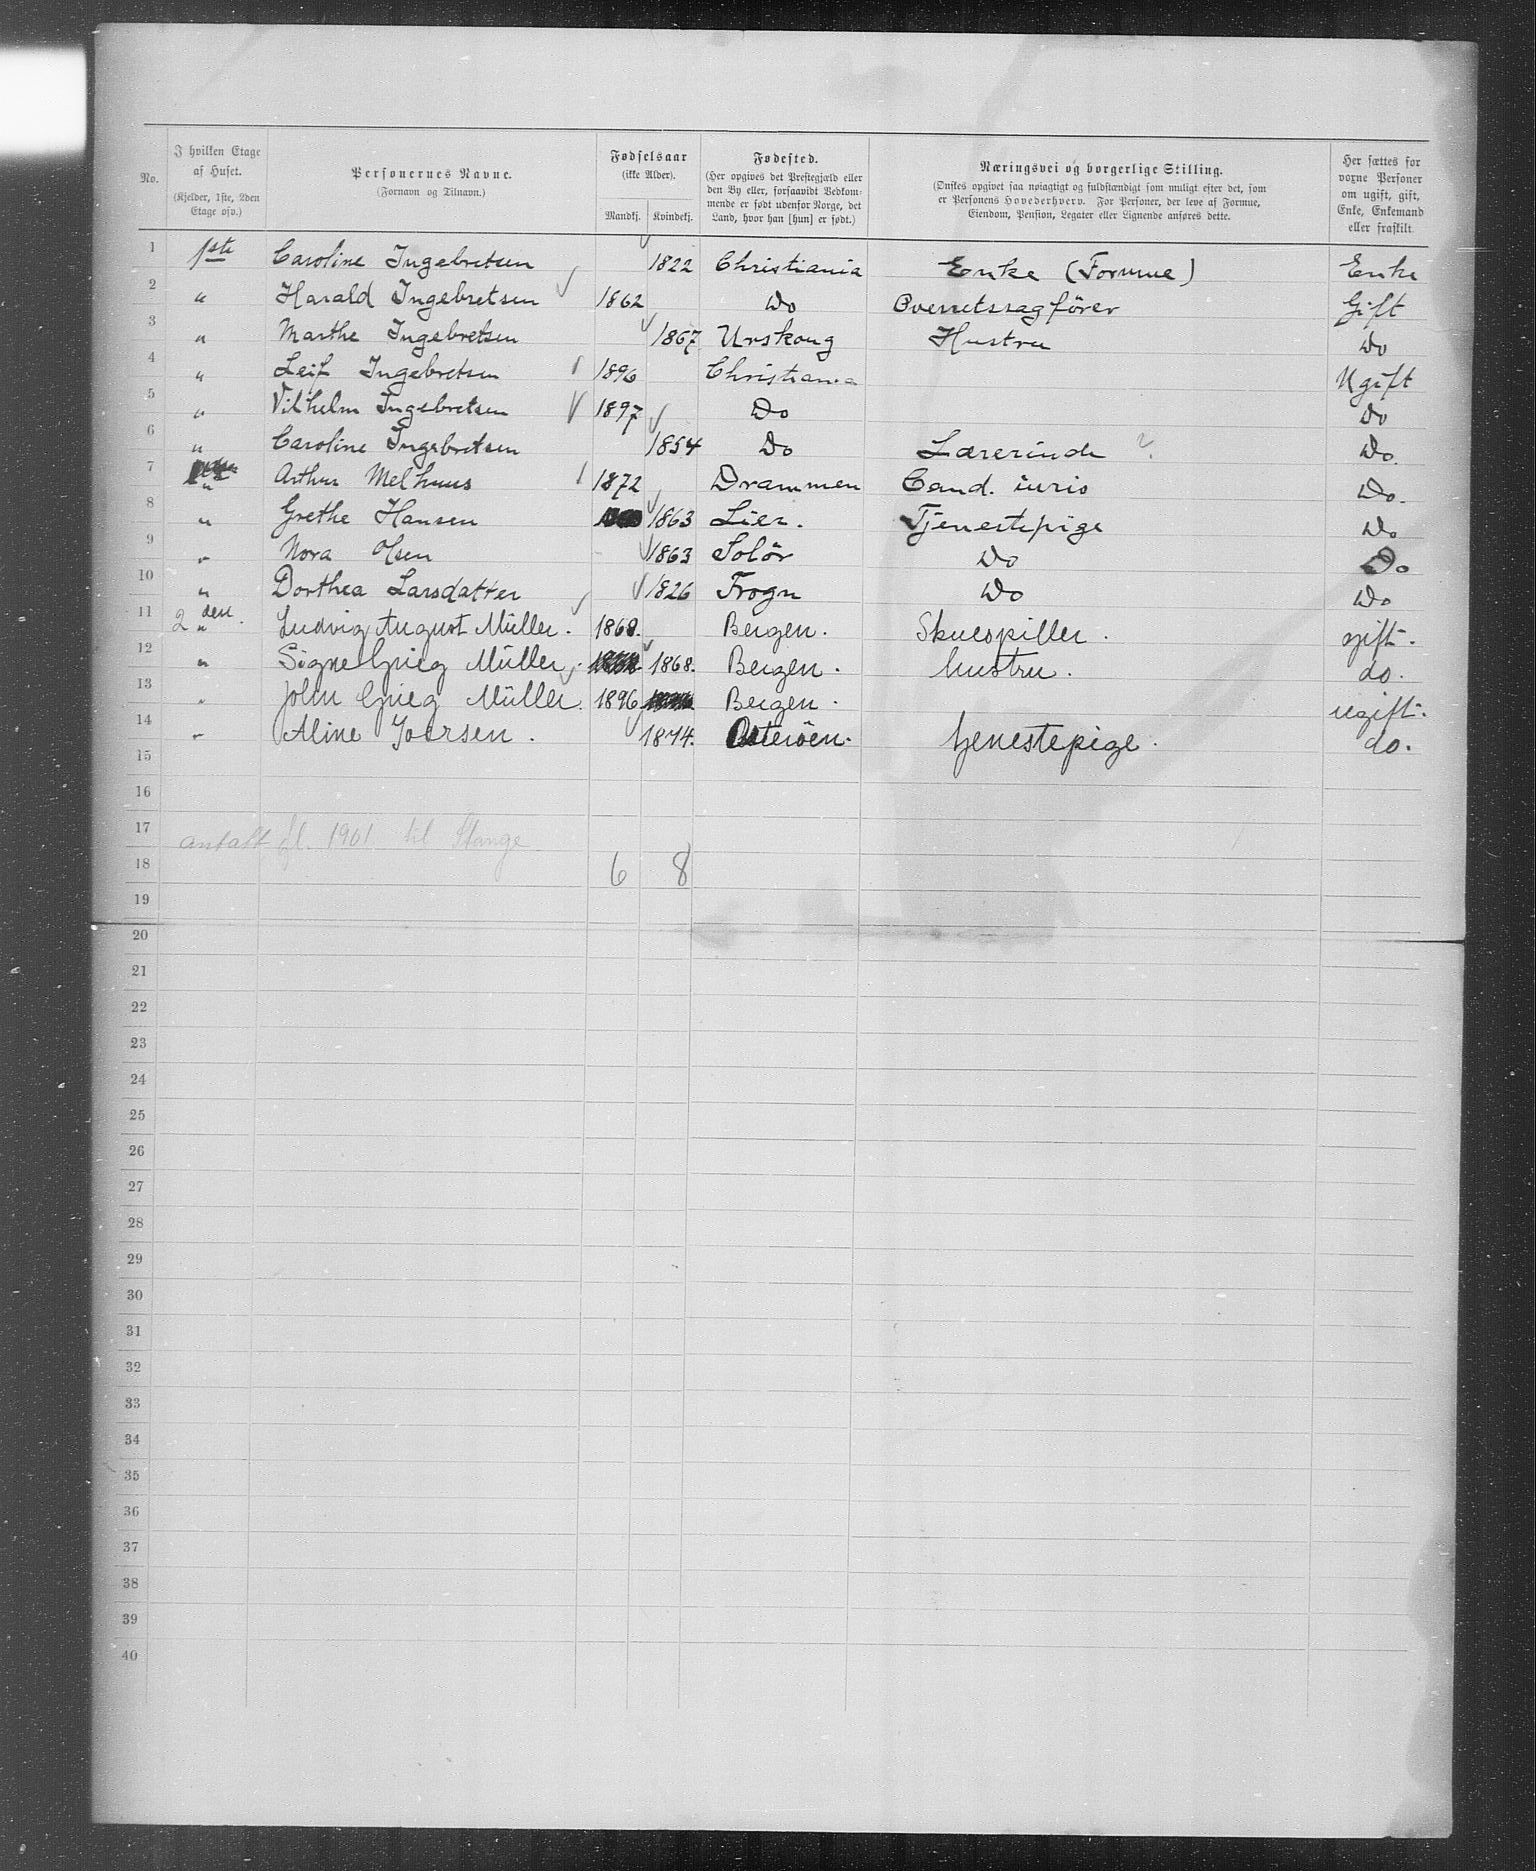 No.
I hvilken Etage af Huset.
(Kjelder, 1ste, 2den Etage osv.)
Personernes Navne.
(Fornavn og Tilnavn.)
Fødselsaar
(ikke Alder).
Mandkj. Kvindekj.
Fødested.
(Her opgives det Prestegjæld eller
den By eller, forsaavidt Vedkom-
mende er født udenfor Norge, det
Land, hvor han [hun] er født.)
Næringsvei og borgerlige Stilling.
(Ønskes opgivet saa nøiagtigt og fuldstændigt som muligt efter det, som
er Personens Hovederhverv. For Personer, der leve af Formue,
Eiendom, Pension, Legater eller Lignende anføres dette.
Her sættes for
voxne Personer
om ugift, gift,
Enke, Enkemand
eller fraskilt
1 1ste Caroline Ingebretsen 1822 Christiania Enke (Formue) Enke
2 " Harald Ingebretsen 1862 Do Overretssagfører Gift
3 " Marthe Ingebretsen 1867 Urskoug Hustru Do
4 " Leif Ingebretsen 1896 Christiania Ugift
5 " Vilhelm Ingebretsen 1897 Do Do
6 " Caroline Ingebretsen 1854 Do Lærerinde ? Do.
7 " Arthur Melhuus 1872 Drammen Cand. iuris Do.
8 " Grethe Hansen 1863 Lier. Tjenestepige Do
9 " Nora Olsen 1863 Solør Do Do
10 " Dorthea Larsdatter 1826 Frogn Do Do
11 2den. " Ludvig August Müller. 1868. Bergen. Skuespiller. gift.
12 " Signe Grieg Müller. 1868. Bergen. hustru. do.
13 " John Grieg Müller. 1896 Bergen. ugift.
14 " Aline Joersen. 1874. Osterøen. tjenestepige. do.
15
16
17 antalt fl. 1901 til Stange
18 6 8
19
20
21
22
23
24
25
26
27
28
29
30
31
32
33
34
35
36
37
38
39
40